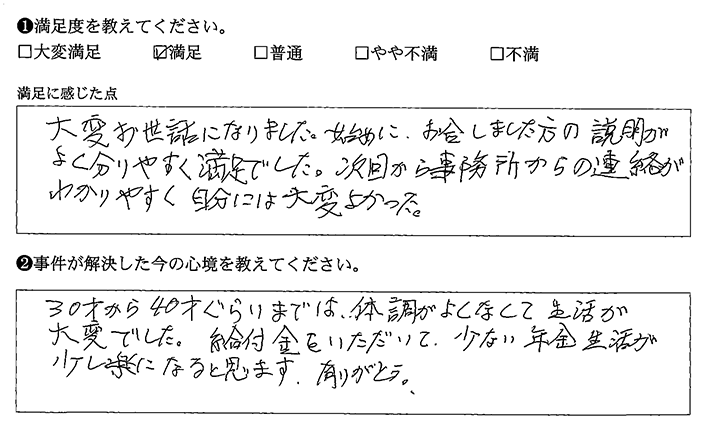 ❶満足度を教えてください。
□大変満足 ☑満足 □普通 □やや不満 □不満
満足に感じた点
大変お世話になりました。始めに、お会しました方の説明が
よく分りやすく満足でした。次回から事務所からの連絡が
わかりやすく自分には大変よかった。
❷事件が解決した今の心境を教えてください。
30才から40才ぐらいまでは、体調がよくなくて生活が
大変でした。給付金をいただいて、少ない年金生活が
少し楽になると思います。有りがとう。